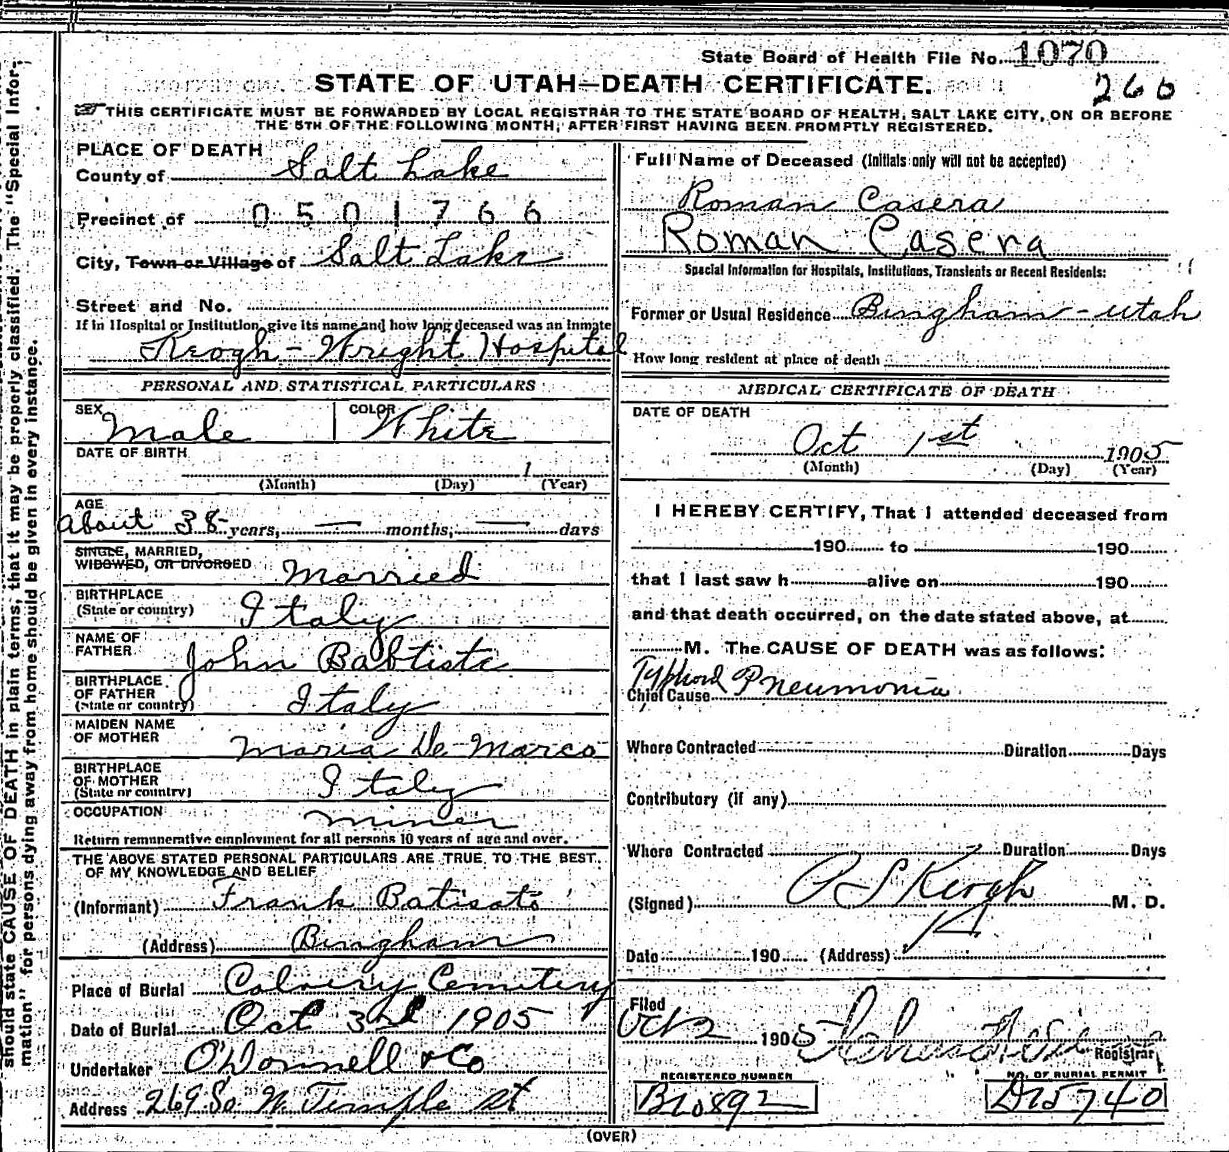 State Board of Health File No. 1070
260
STATE OF UTAH—DEATH CERTIFICATE.
THIS CERTIFICATE MUST BE FORWARDED BY LOCAL REGISTRAR TO THE STATE BOARD OF HEALTH, SALT LAKE CITY, ON OR BEFORE
THE 5TH OF THE FOLLOWING MONTH, AFTER FIRST HAVING BEEN PROMPTLY REGISTERED.
PLACE OF DEATH
County of Salt Lake
Precinct of 0501766
City, Town or Village of Salt Lake
Street and No.
If in Hospital or Institution, give its name and how long deceased was an inmate
Keogh - Wright Hospital
PERSONAL AND STATISTICAL PARTICULARS
SEX Male COLOR White
DATE OF BIRTH
1
(Month) (Day) (Year)
AGE
about 38 years, — months, — days
SINGLE, MARRIED,
WIDOWED, OR DIVORCED Married
BIRTHPLACE
(State or country) Italy
NAME OF
FATHER John Babtiste
BIRTHPLACE
OF FATHER
(State or country) Italy
MAIDEN NAME
OF MOTHER Maria De Marco
BIRTHPLACE
OF MOTHER
(State or country) Italy
OCCUPATION miner
Return remunerative employment for all persons 10 years of age and over.
THE ABOVE STATED PERSONAL PARTICULARS ARE TRUE TO THE BEST
OF MY KNOWLEDGE AND BELIEF
(Informant) Frank Batisato
(Address) Bingham
Place of Burial Calvery Cemetery
Date of Burial Oct 3rd 1905
Undertaker O'Donnell & Co
Address 269 So W. Temple st
Full Name of Deceased (Initials only will not be accepted)
Roman Casera
Roman Casera
Special Information for Hospitals, Institutions, Transients or Recent Residents:
Former or Usual Residence Bingham - Utah
How long resident at place of death
MEDICAL CERTIFICATE OF DEATH
DATE OF DEATH
Oct 1st 1905
(Month) (Day) (Year)
I HEREBY CERTIFY, That I attended deceased from
190 to 190
that I last saw h alive on 190
and that death occurred, on the date stated above, at
M. The CAUSE OF DEATH was as follows:
Chief Cause Typhoid Pneumonia
Where Contracted Duration Days
Contributory (if any)
Where Contracted Duration Days
(Signed) P S Keogh M. D.
Date 190 (Address)
Filed
Oct 2 1905 Registrar
REGISTERED NUMBER
B10892
NO. OF BURIAL PERMIT
D15740
(OVER)
should state CAUSE OF DEATH in plain terms, that it may be properly classified. The "Special Infor-
mation" for persons dying away from home should be given in every instance.